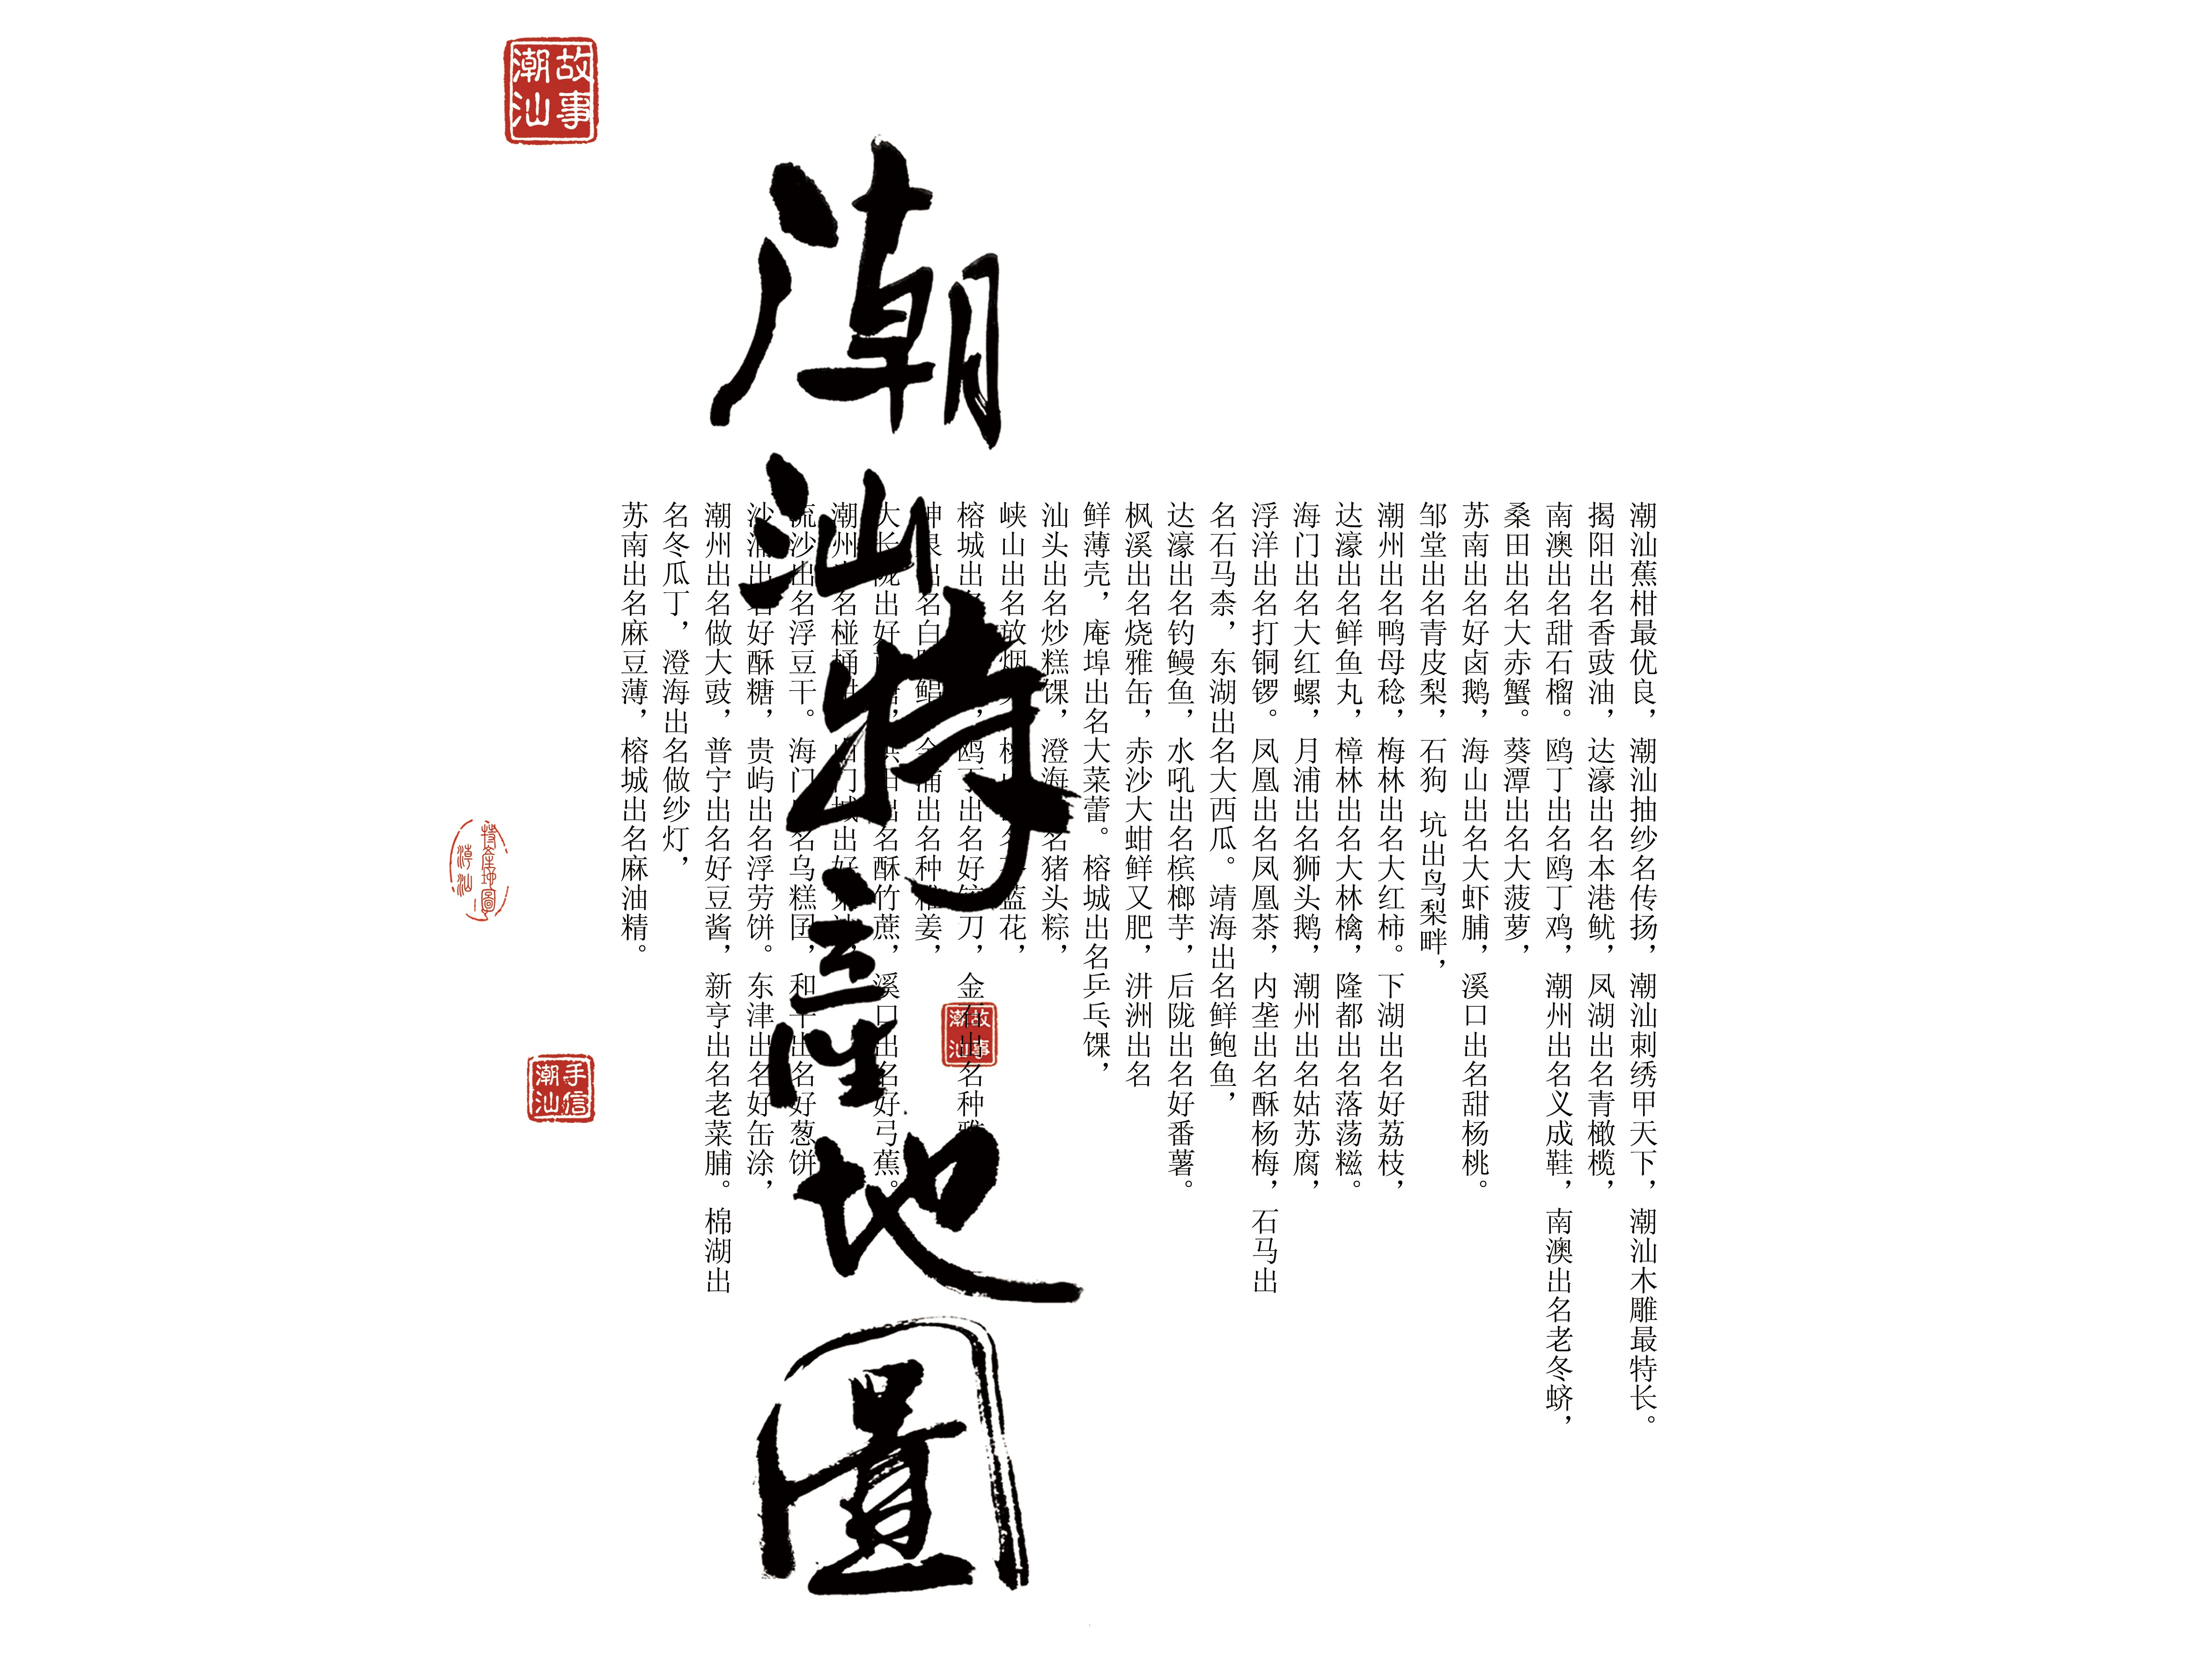 潮汕蕉柑最优良，潮汕抽纱名传扬，潮汕刺绣甲天下，潮汕木雕最特长。
揭阳出名香豉油，达濠出名本港鱿，凤湖出名青橄榄，
南澳出名甜石榴。鸥丁出名鸥丁鸡，潮州出名义成鞋，南澳出名老冬蛴，
桑田出名大赤蟹。葵潭出名大菠萝，
苏南出名好卤鹅，海山出名大虾脯，溪口出名甜杨桃。
邹堂出名青皮梨，石狗 坑出鸟梨畔，
潮州出名鸭母稔，梅林出名大红柿。下湖出名好荔枝，
达濠出名鲜鱼丸，樟林出名大林檎，隆都出名落荡糍。
海门出名大红螺，月浦出名狮头鹅，潮州出名姑苏腐，
浮洋出名打铜锣。凤凰出名凤凰茶，内垄出名酥杨梅，石马出
名石马柰，东湖出名大西瓜。靖海出名鲜鲍鱼，
达濠出名钓鳗鱼，水吼出名槟榔芋，后陇出名好番薯。
枫溪出名烧雅缶，赤沙大蚶鲜又肥，汫洲出名
鲜薄壳，庵埠出名大菜蕾。榕城出名乒乓馃，
汕头出名炒糕馃，澄海名猪头粽，
峡山出名放烟蓝花，
榕城出，鸥丁出名好刀，金石出名种
出名白鲳出名种姜，
大长陇出好，出名酥竹蔗，溪口出名好弓蕉。
潮州名桠桶门城出好
流沙出名浮豆干。海门名乌糕囝，和平出名好葱饼
沙浦出名好酥糖，贵屿出名浮劳饼。东津出名好缶涂，
潮州出名做大豉，普宁出名好豆酱，新亨出名老菜脯。棉湖出
名冬瓜丁，澄海出名做纱灯，
苏南出名麻豆薄，榕城出名麻油精。
潮汕特产地圖
故事潮汕
故事潮汕
特產地圖潮汕
手信潮汕